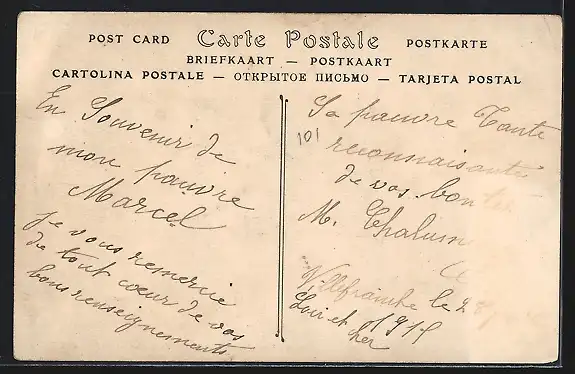 POST CARD Carte Postale POSTKARTE
BRIEFKAART — POSTKAART
CARTOLINA POSTALE — ОТКРЫТОЕ ПИСЬМО — TARJETA POSTAL
En Souvenir de
mon pauvre
Marcel
je vous remercie
de tout cœur de vos
bons renseignements
101
Sa pauvre Tante
reconnaissante
de vos bontés
M. Chalum
Villefranche le 28
Loir et 1915
cher